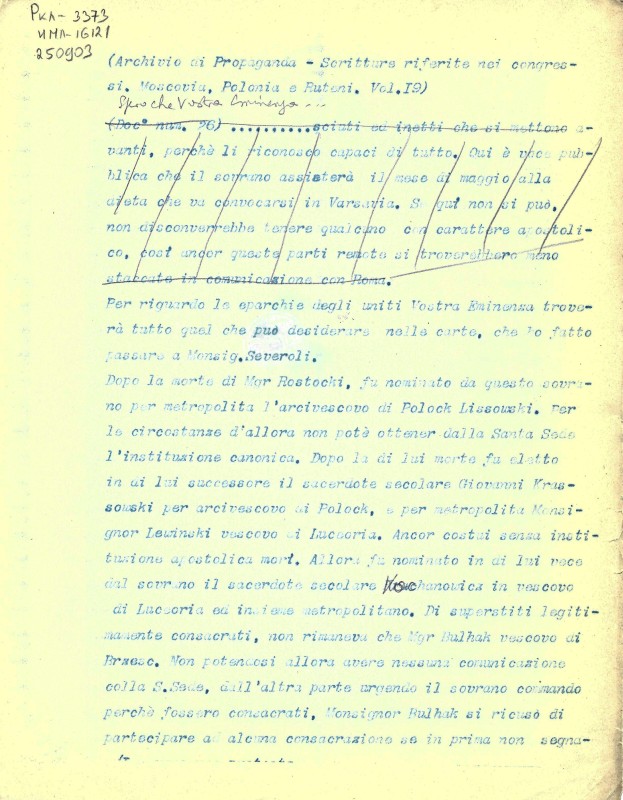 РКЛ-3373
ИМЛ-16121
250903
(Archivio di Propaganda - Scritture riferite nei congres-
si. Moscovia, Polonia e Ruteni. Vol.I9)
Spero che Vostra Eminenza...
(Doc° num. 26) ..........sciuti ed inetti che si mettono a-
vanti, perchè li riconosco capaci di tutto. Qui è voce pub-
blica che il sovrano assisterà il mese di maggio alla
dieta che va convocarsi in Varsavia. Se qui non si può,
non disconverrebbe tenere qualcuno con carattere apostoli-
co, così ancor queste parti remote si troverebbero meno
staccate in comunicazione con Roma.
Per riguardo le eparchie degli uniti Vostra Eminenza trove-
rà tutto quel che può desiderare nelle carte, che ho fatto
passare a Monsig.Severoli.
Dopo la morte di Mgr Rostocki, fu nominato da questo sovra-
no per metropolita l'arcivescovo di Polock Lissowski. Per
le circostanze d'allora non potè ottener dalla Santa Sede
l'instituzione canonica. Dopo la di lui morte fu eletto
in di lui successore il sacerdote secolare Giovanni Kras-
sowski per arcivescovo di Polock, e per metropolita Monsi-
gnor Lewinski vescovo di Luceoria. Ancor costui senza insti-
tuzione apostolica morì. Allora fu nominato in di lui vece
dal sovrano il sacerdote secolare Kochanowicz in vescovo
di Luceoria ed insieme metropolitano. Di superstiti legiti-
mamente consacrati, non rimaneva che Mgr Bulhak vescovo di
Brzesc. Non potendosi allora avere nessuna comunicazione
colla S.Sede, dall'altra parte urgendo il sovrano commando
perchè fossero consacrati, Monsignor Bulhak si ricusò di
partecipare ad alcuna consacrazione se in prima non segna-